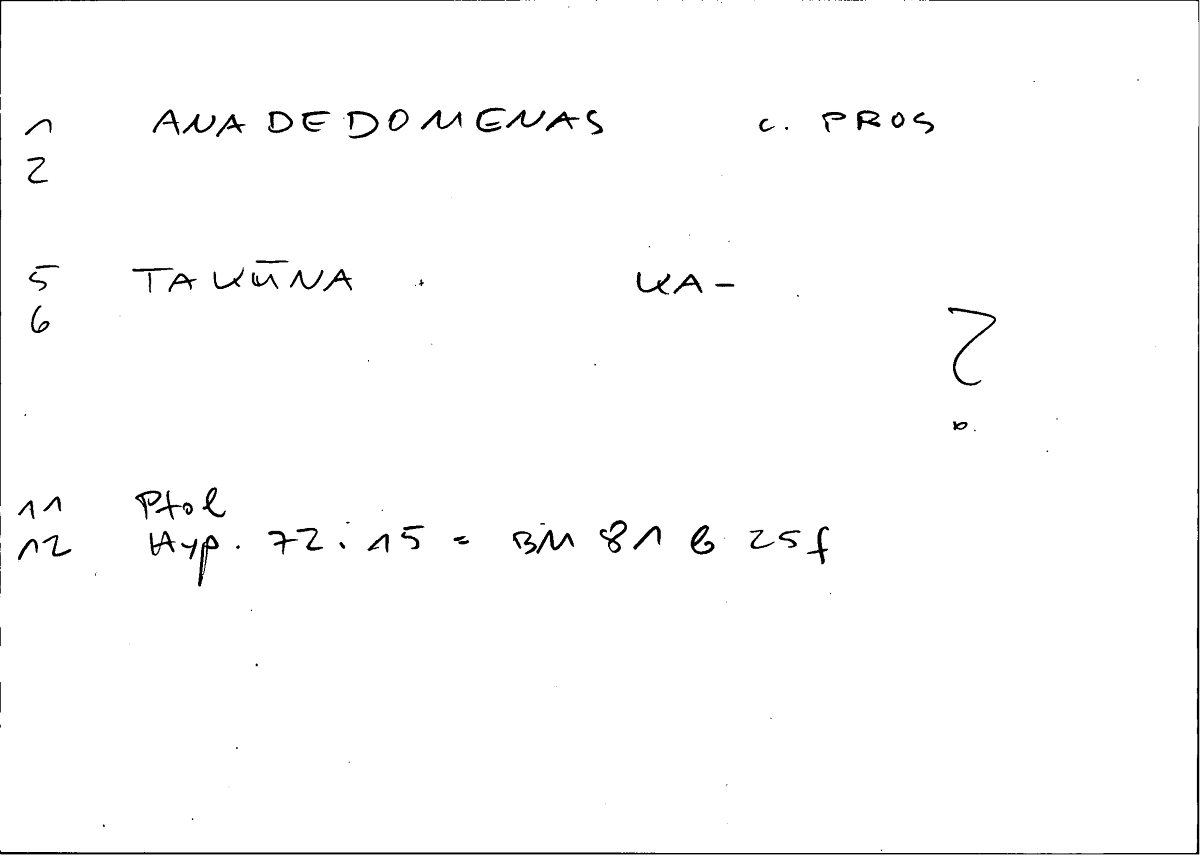 1 ANADEDOMENAS c. PROS
2
5 TAKŪNA KA-
6
?
11 Ptol
12 Hyp. 72.15 = BM 81 b 25f